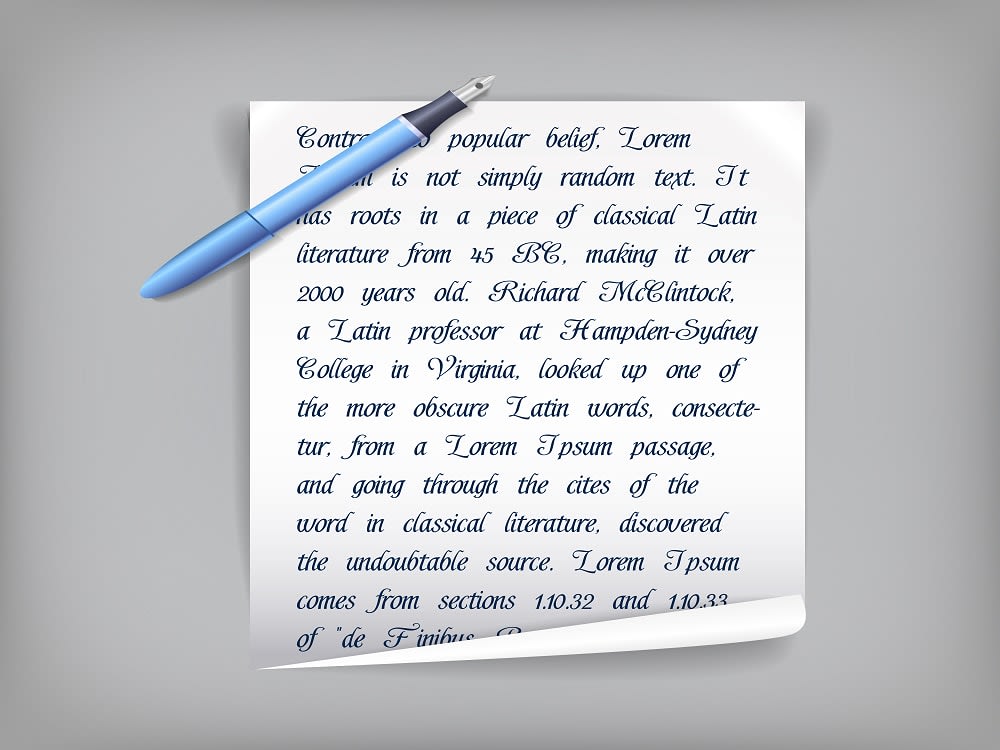 popular belief, Lorem
is not simply random text. It
has roots in a piece of classical Latin
literature from 45 BC, making it over
2000 years old. Richard McClintock,
a Latin professor at Hampden-Sydney
College in Virginia, looked up one of
the more obscure Latin words, consecte-
tur, from a Lorem Ipsum passage,
and going through the cites of the
word in classical literature, discovered
the undoubtable source. Lorem Ipsum
comes from sections 1.10.32 and 1.10.33
of "de Finibus